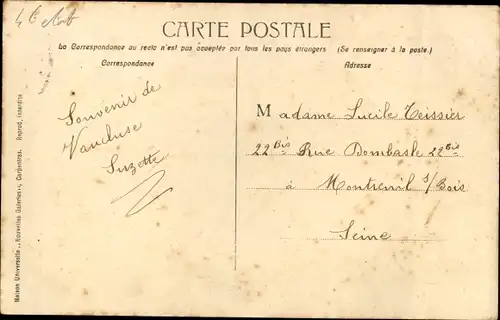 CARTE POSTALE
La Correspondance au recto n'est pas acceptée par tous les pays étrangers (Se renseigner à la poste.)
Correspondance
Adresse
Souvenir de
Vaucluse
Suzette
Madame Lucile Teissier
22Bis Rue Dombasle 22Bis
à Montreuil s/Bois
Seine
Maison Universelle .. Nouvelles Galeries», Carpentras. Reprod. interdite